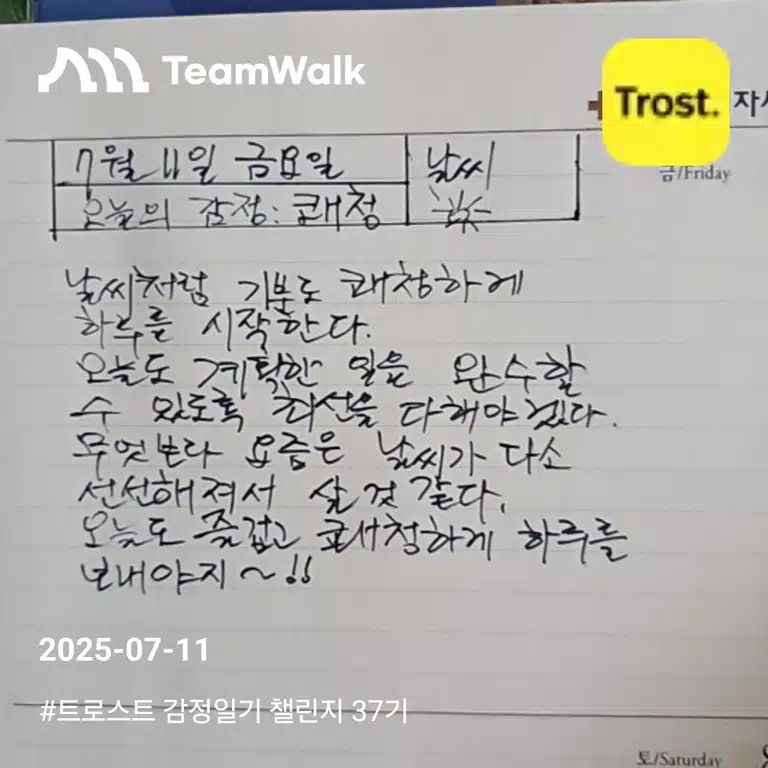 TeamWalk
Trost. 자
금/Friday
7월 11일 금요일 날씨
오늘의 감정: 쾌청
날씨처럼 기분도 쾌청하게
하루를 시작한다.
오늘도 계획한 일을 완수할
수 있도록 최선을 다해야겠다.
무엇보다 요즘은 날씨가 다소
선선해져서 살 것 같다.
오늘도 즐겁고 쾌청하게 하루를
보내야지~!!
2025-07-11
#트로스트 감정일기 챌린지 37기
토/Saturday